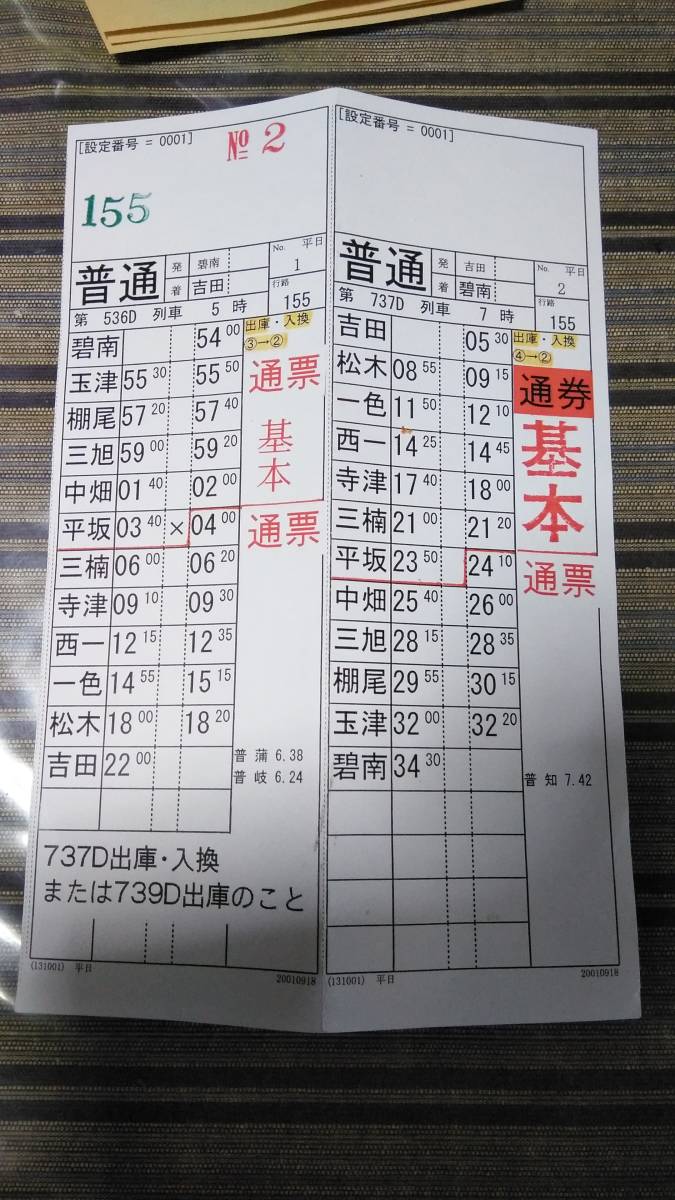 [設定番号 = 0001]
№ 2
155
普通 発 碧南 着 吉田 No. 平日 1
行路 155
第 536D 列車 5 時
碧南 54 00 出庫・入換
③→②
玉津 55 30 55 50 通票
棚尾 57 20 57 40 基本
三旭 59 00 59 20
中畑 01 40 02 00
平坂 03 40 × 04 00 通票
三楠 06 00 06 20
寺津 09 10 09 30
西一 12 15 12 35
一色 14 55 15 15
松木 18 00 18 20
吉田 22 00 普 蒲 6.38
普 岐 6.24
737D出庫・入換
または739D出庫のこと
(131001) 平日 20010918
[設定番号 = 0001]
普通 発 吉田 着 碧南 No. 平日 2
行路 155
第 737D 列車 7 時
吉田 05 30 出庫・入換
④→②
松木 08 55 09 15 通券
一色 11 50 12 10 基本
西一 14 25 14 45
寺津 17 40 18 00
三楠 21 00 21 20
平坂 23 50 24 10 通票
中畑 25 40 26 00
三旭 28 15 28 35
棚尾 29 55 30 15
玉津 32 00 32 20
碧南 34 30 普 知 7.42
(131001) 平日 20010918